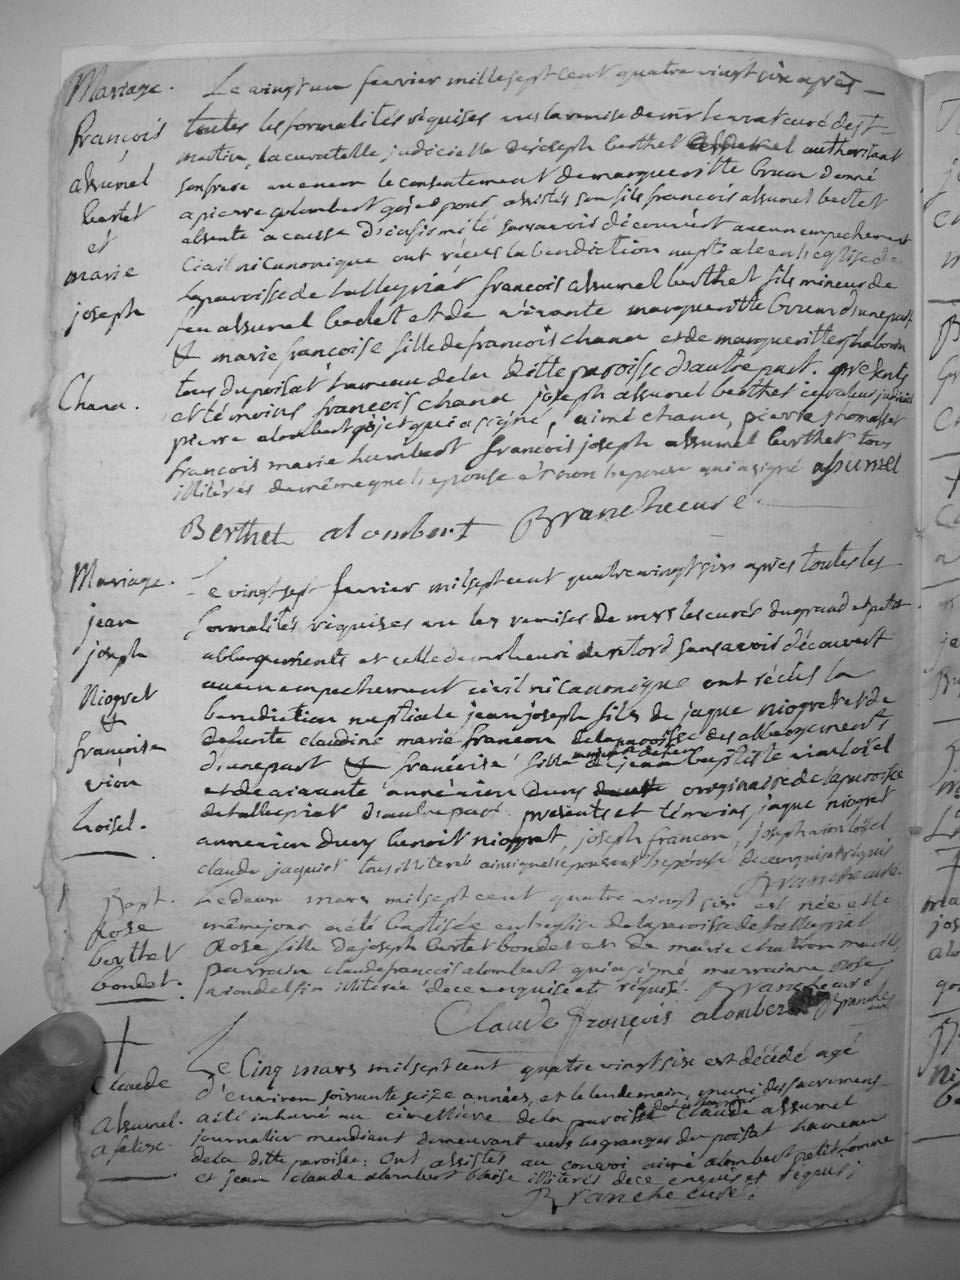 Mariage.
françois
assumel
bertet
et
marie
joseph
Chana.
Le vingt un fevrier mille sept cent quatre vingt six après
toutes les formalités réquises vus la remise de mr le curé de st
martin, la curatelle judicielle de joseph berthet authorisant
son frere, vu encor le consentement de margueritte brun donné
a pierre alombert pour assister son fils françois assumel bertet
absente a cause d'infirmité sans avoir découvert aucun empechement
civil ni canonique ont réçus la bénédiction nuptiale en l'eglise de
la paroisse de talleyriat françois assumel berthet fils mineur de
feu assumel bertet et de vivante margueritte brun d'une part
& marie françoise fille de françois chana et de margueritte
tous du poisat hameau de la ditte paroisse d'autre part. présents
et témoins françois chana joseph assumel berthet curateur
pierre alombert qui a signé, aimé chana, pierre
françois marie humbert françois joseph assumel berthet tous
illitérés de même que l'epouse et non l'epoux qui a signé assumel
Berthet alombert Branche curé
Mariage.
jean
joseph
Niogret
&
françoise
vion
Loisel.
Le vingt sept fevrier mil sept cent quatre vingt six apres toutes les
formalités réquises vu les remises de mrs les curés du grand et petit
abbergements et celle de sans avoir découvert
aucun empechement civil ni canonique ont réçus la
bénédiction nuptiale jean joseph fils de jaque niogret et de
defunte claudine marie françon de la paroisse des abbergements
d'une part & françoise fille de jean baptiste vion loisel
et de vivante originaire de la paroisse
de talleyriat d'autre part. présents et témoins jaque niogret
benoit niogret, joseph françon, joseph vion loisel
claude jaquiot tous illiterés ainsi que l'epoux et l'epouse de ce enquis et réquis
Branche curé.
Bapt.
Rose
berthet
bondet.
Le deux mars mil sept cent quatre vingt six est née et le
même jour a été baptisée en l'eglise de la paroisse de talleyriat
Rose fille de joseph bertet bondet et de marie
parrain claude françois alombert qui a signé marrainne Rose
illitérée de ce enquise et réquise. Branche curé
Claude françois alombert Branche
Claude
Assumel
Le Cinq mars mil sept cent quatre vingt six est décédé agé
d'environ soixante seize années, et le lendemain, muni des sacremens
a été inhumé au cimetière de la paroisse Claude assumel
journalier mendiant demeurant vers les granges du poisat hameau
de la ditte paroisse: Ont assistés au convoi aimé alombert petit homme
et jean claude alombert illitérés de ce enquis et réquis;
Branche curé.